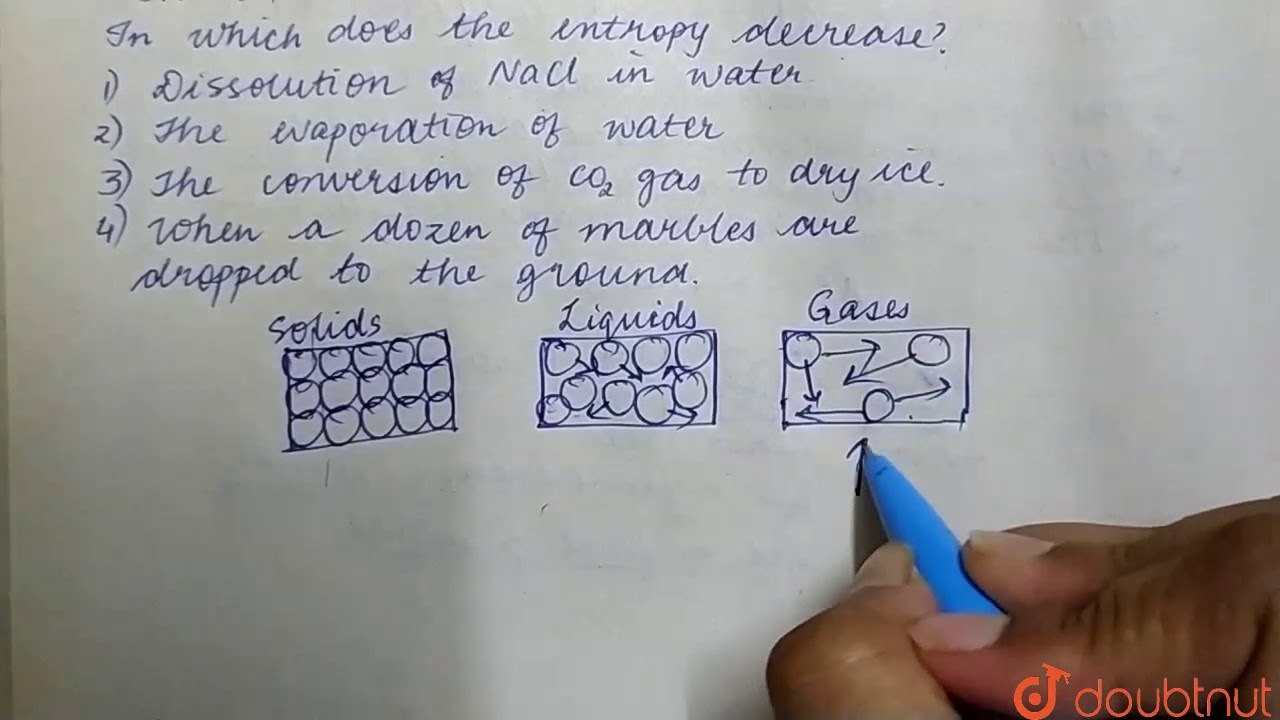 In which does the entropy decrease?
1) Dissolution of NaCl in water
2) The evaporation of water
3) The conversion of CO₂ gas to dry ice.
4) When a dozen of marbles are
dropped to the ground.
Solids Liquids Gases
doubtnut